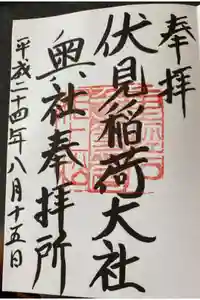 奉拝
伏見稲荷大社
奥社奉拝所
平成二十四年八月十五日